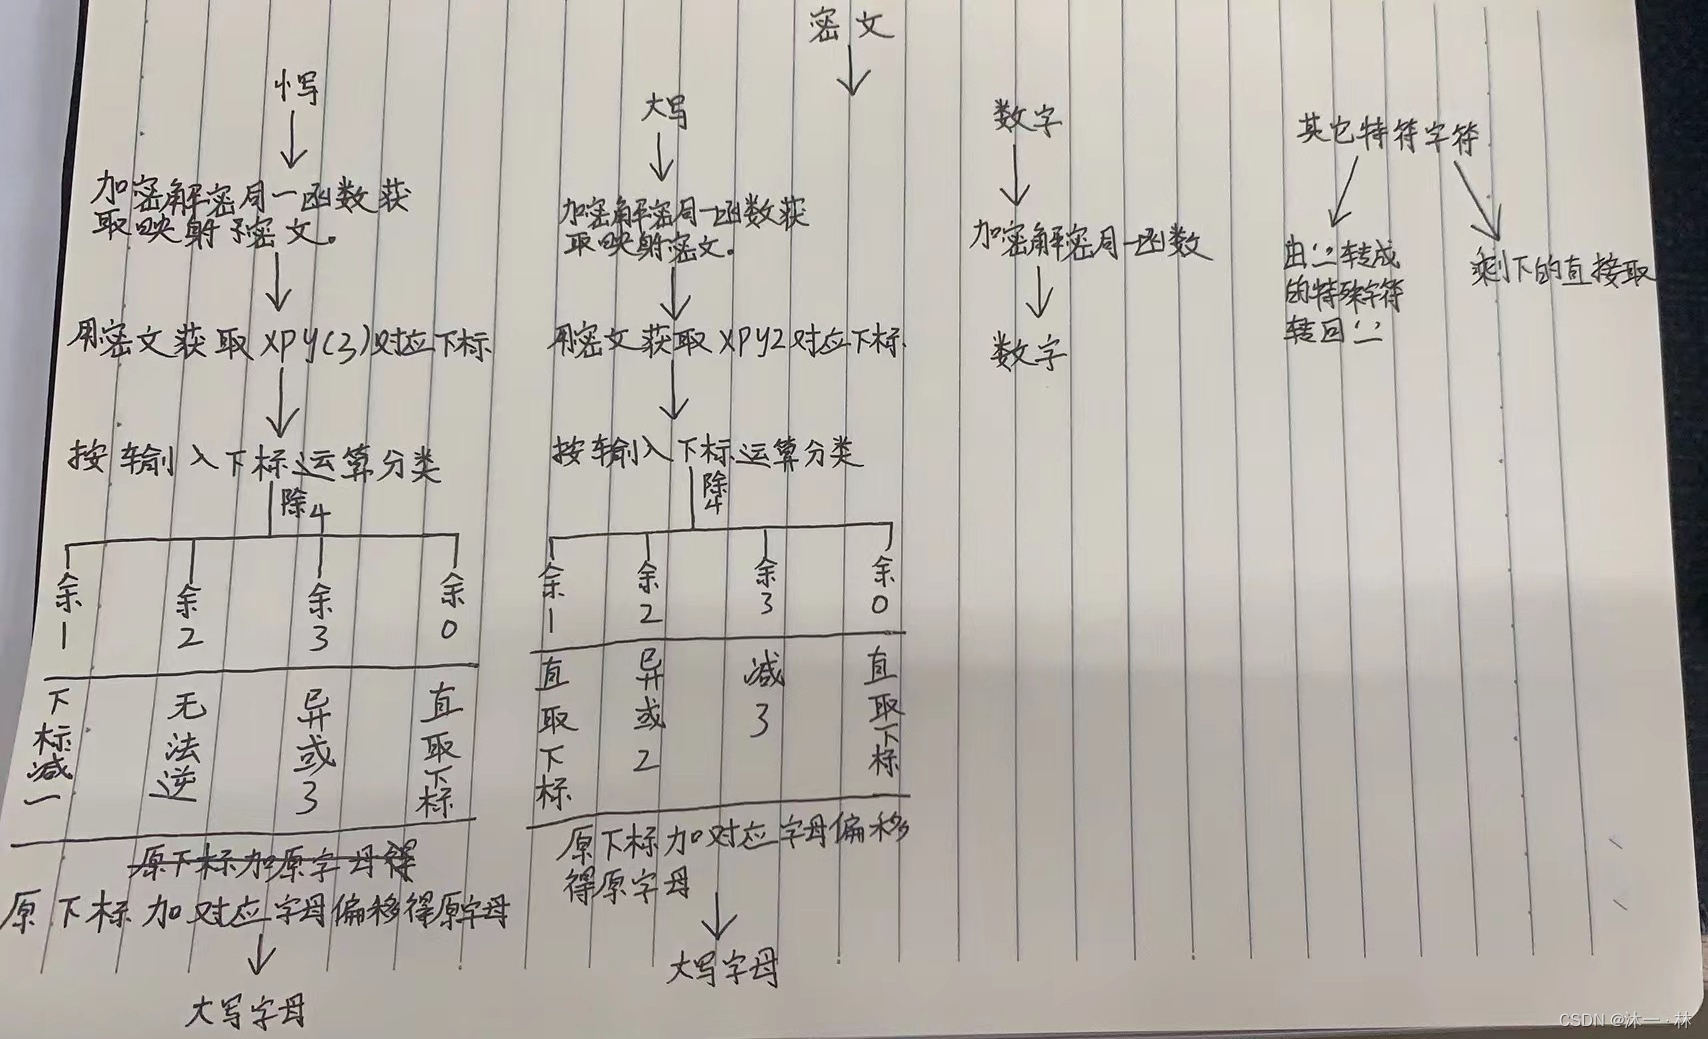 密文
小写
加密解密同一函数获
取映射子密文。
用密文获取XPY(3)对应下标
按输入下标运算分类
除4
余1
余2
余3
余0
下标减一
无法逆
异或3
直取下标
原下标加原字母得
原下标加对应字母偏移得原字母
大写字母
大写
加密解密同一函数获
取映射密文。
用密文获取XPY2对应下标
按输入下标运算分类
除4
余1
余2
余3
余0
直取下标
异或2
减3
直取下标
原下标加对应字母偏移
得原字母
大写字母
数字
加密解密同一函数
数字
其它特符字符
由':'转成
的特殊字符
转回':'
剩下的直接取
CSDN @沐一 · 林